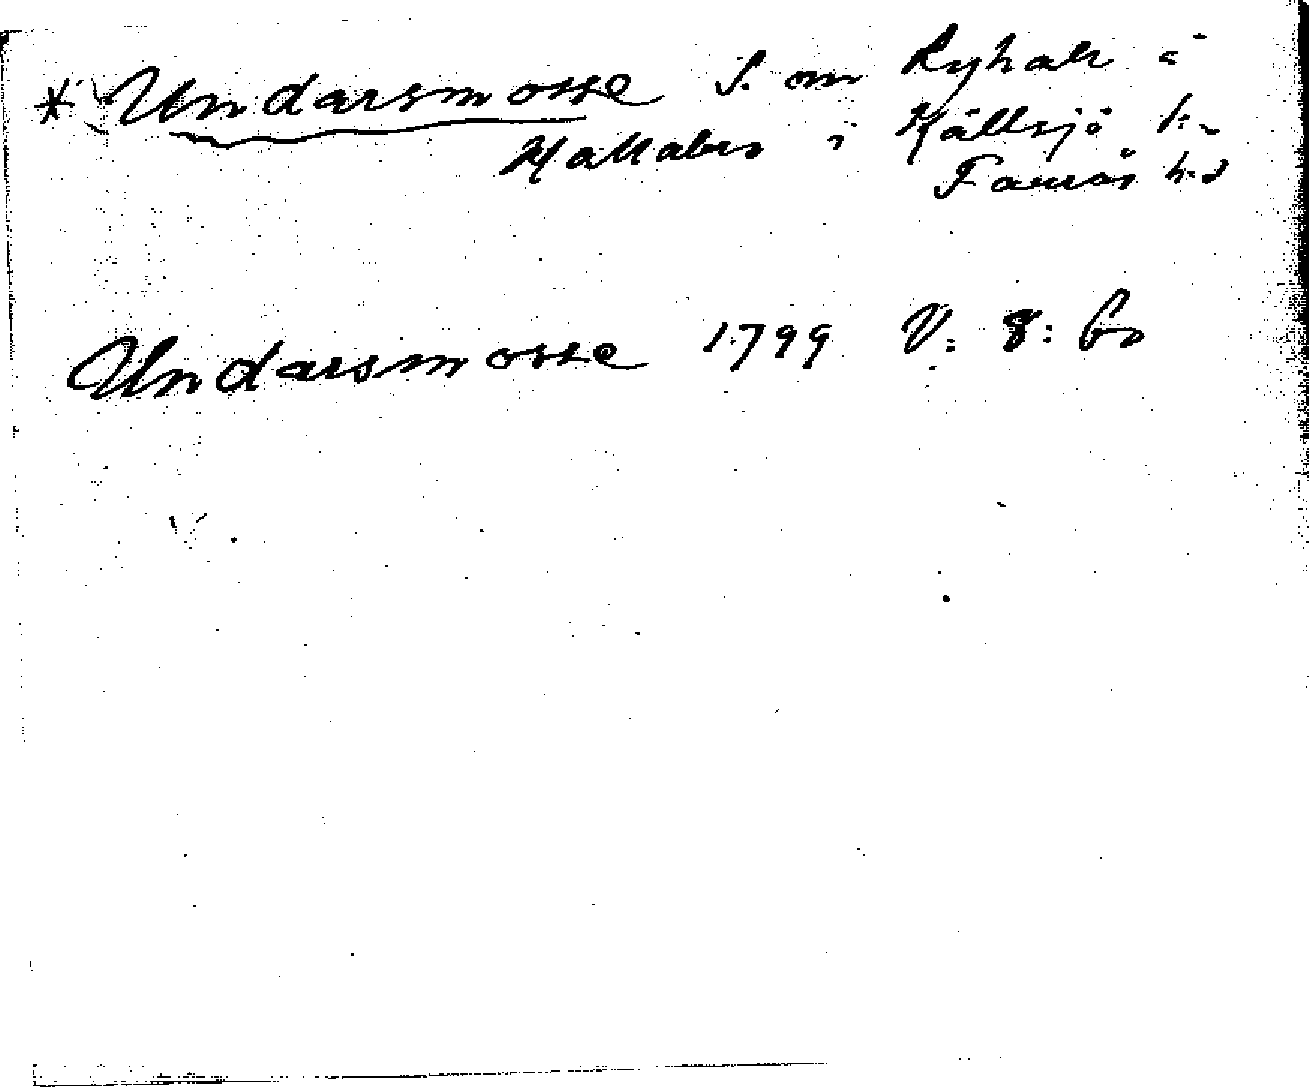 * Undarsmosse S. om Ryhall i
Källsjö k:n
Faurås h:d
Undarsmosse 1799 V: 8: 60